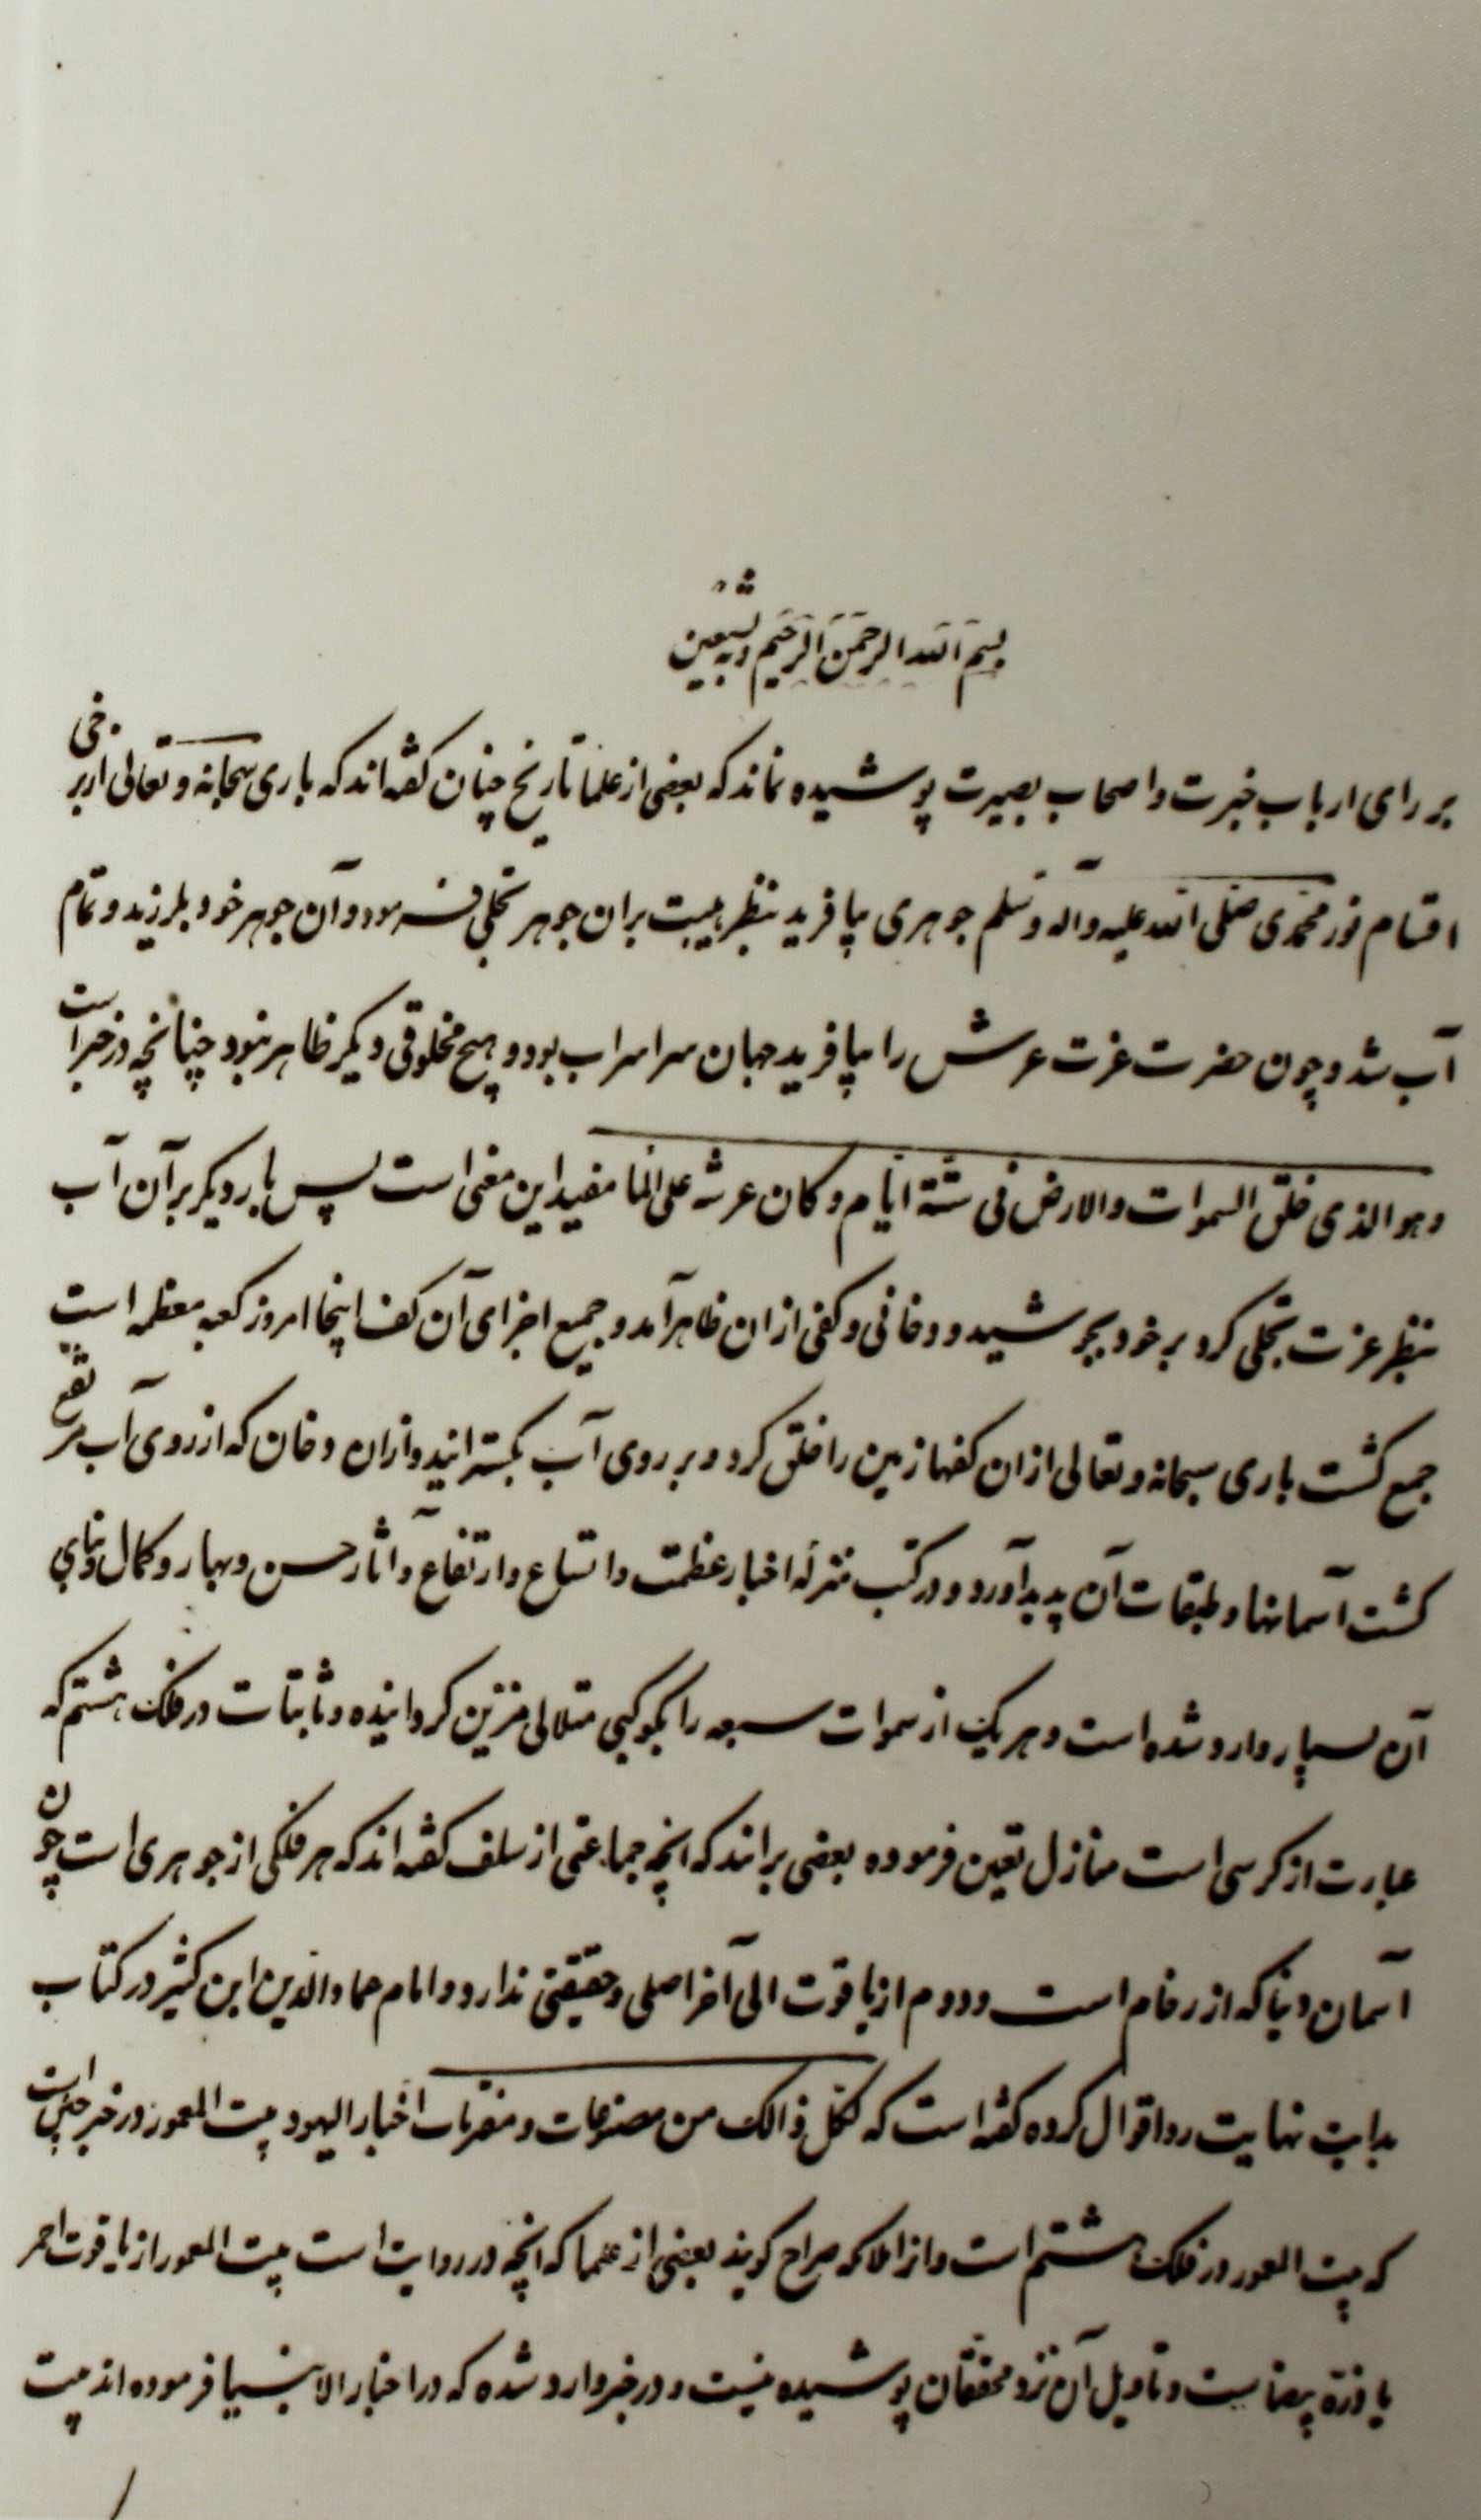 بسم الله الرحمن الرحیم وبه نستعین
بر رای ارباب خبرت و اصحاب بصیرت پوشیده نماند که بعضی از علما تاریخ چنان کفته‌اند که باری سبحانه و تعالی از برخی
اقسام نور محمدی صلی الله علیه وآله وسلم جوهری بیافرید بنظر هیبت بران جوهر تجلی فرمود و آن جوهر خود بلرزید و تمام
آب شد و چون حضرت عزت عرش را بیافرید جهان سراسر اب بود و هیچ مخلوقی دیکر ظاهر نبود چنانچه در خبر است
وهو الذی خلق السموات والارض فی ستة ایام وکان عرشه علی الما مفید این معنی است پس بار دیکر بر آن آب
بنظر عزت تجلی کرد بر خود بجوشید و دخانی و کفی ازان ظاهر آمد و جمیع اجزای آن کف اینجا امروز کعبه معظمه است
جمع کشت باری سبحانه و تعالی ازان کفها زمین را خلق کرد و بر روی آب بکسترانید و ازان دخان که از روی آب مرتفع
کشت آسمانها و طبقات آن پدید آورد و در کتب منزله اخبار عظمت و اتساع و ارتفاع و آثار حسن و بهار و کمال
آن بسیار وارد شده است و هر یک از سموات سبعه را بکوکبی متلالی مزین کردانیده و ثابتات در فلک هشتم که
عبارت از کرسی است منازل تعین فرموده بعضی برانند که انچه جماعتی از سلف کفته‌اند که هر فلکی از جوهری است چون
آسمان دنیا که از رخام است و دوم از یاقوت الی آخر اصلی و حقیقتی ندارد و امام عماد الدین ابن کثیر در کتاب
بدایت نهایت رد اقوال کرده کفته است که فکل ذالک من مصنوعات و مفتریات اخبار الیهود بیت المعمور در خبر چنین است
که بیت المعمور در فلک هشتم است و انرا ملا که صراح کویند بعضی از علما که انچه در روایت است بیت المعمور از یاقوت احمر
یا درة بیضاست و تاویل آن نزد محققان پوشیده نیست و در خبر وارد شده که در اخبار الانبیا فرموده اند بیت